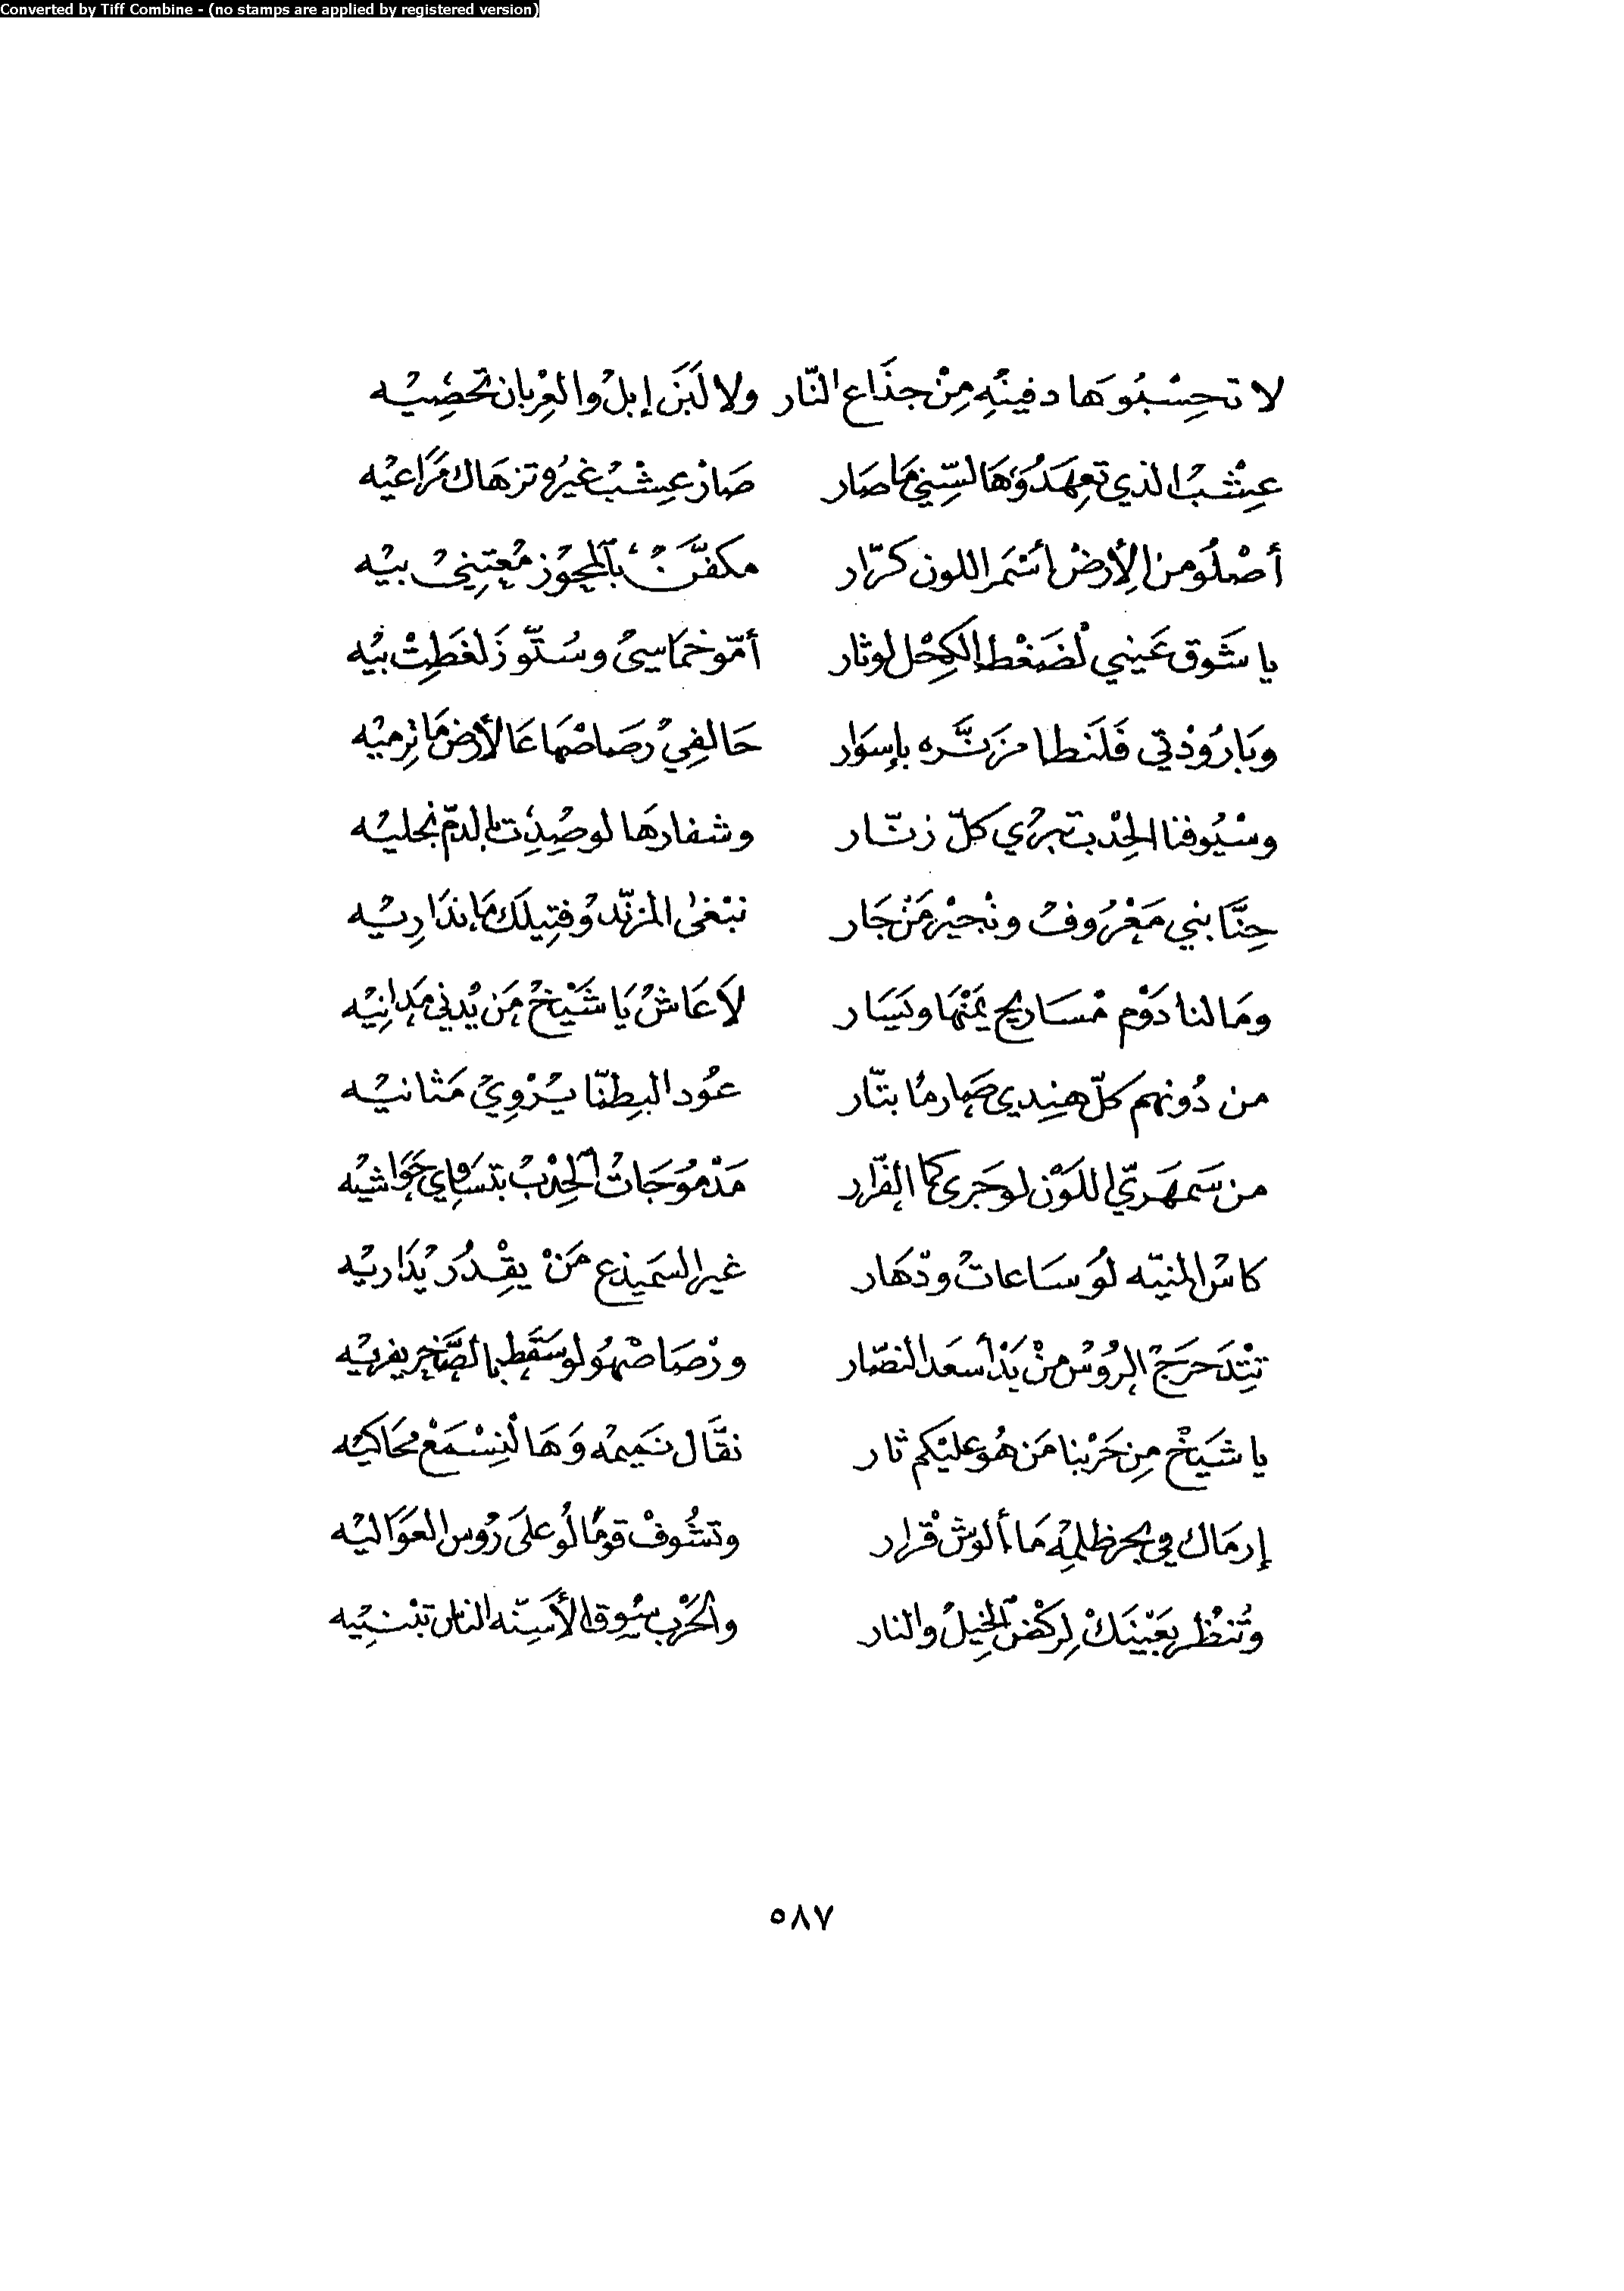 Converted by Tiff Combine - (no stamps are applied by registered version)
لا تحِسْبُوهَا دفينِه مِنْ جذَاع النّار ولا لَبَن إبلْ والعِرْبان تحْصِيْه
عِشْبُ الذي تعِهَدُوهَا لسّنِي مَا صَار صَارْ عِشْبْ غيرُو تزهَاك مَرَاعيْه
أصْلُو من الأرضْ أسْمَر اللون كرّار مكفّنْ بالمجوَزْ مُعتِنيْ بيْه
يا شَوق عَيني لضَغْط الكِحْل لوثار أمّو خمَاسيْ وسْتّو زَلغَطِتْ بيْه
وبَارُوْدتي فَلَنطا مزَنَّره بإسوَار حَالفِيْ رصَاصْهَا عَالأرض مَا نِرميْه
وسْيُوفنا الحِدْب تبرْي كلّ زنّار وشفارهَا لو صْدِيَت بالدمّ نجليْه
حِنَّا بني مَعْرُوفْ ونْجيْر مَنْ جَار نبْغى المزنّد وُفتِيلك مَا ندَاريْه
ومَا لنا دَوْم مْسَاريح يَمْنْهَا ويَسَار لاَ عَاشْ يَا شَيْخْ مَن يُدني مَدانِيْه
من دُونهم كلّ هنِدي صَارمًا بتّار عُود البِطنّا يرْوِيْ مَثانيْه
من سَمهَريّ اللوَنْ لو جَرى كما الفرّار مَدْموُجَاتْ الحِدْبْ بتسَاوي حَوَاشيْه
كاسْ المنيّه لوُ سَاعاتْ ودّهَار غير السَميذع مَنْ يقِدُر يْدَاريْه
تتِدَحرَجْ الرُوسْ مِنْ يَدْ أسعَد النصّار ورْصَاصْهوُ لو سَقَط بالصَّخر يفريْه
يا شَيَخْ مِن حَرْبنا مَن هُو عليْكم ثار نقَّال نمَيمهْ وَهَا لْنِسْمَعْ محَاكيْه
إرمَاك في بحر ظلمِه مَا ألوش قْرار وتشُوفْ قومًا لُو علىَ رُوس العوَاليْه
وتُنظر بعَيْنَكْ لِركْضْ الخِيلْ والنار والحَرْب سُوقا الأسَنّه الناس تبْنيْه
٥٨٧